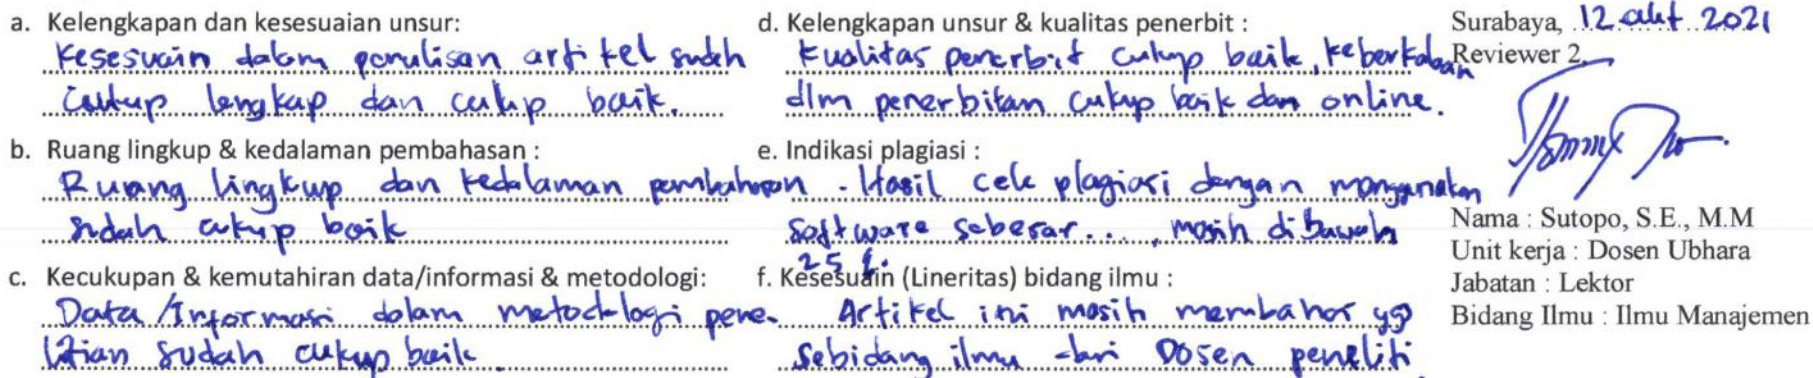 a. Kelengkapan dan kesesuaian unsur:
Kesesuain dalam penulisan artikel sudah
cukup lengkap dan cukup baik.
b. Ruang lingkup & kedalaman pembahasan :
Ruang lingkup dan kedalaman pembahasan
sudah cukup baik
c. Kecukupan & kemutahiran data/informasi & metodologi:
Data/Informasi dalam metodologi pene-
litian sudah cukup baik
d. Kelengkapan unsur & kualitas penerbit :
Kualitas penerbit cukup baik, keberkalaan
dlm penerbitan cukup baik dan online.
e. Indikasi plagiasi :
- Hasil cek plagiasi dengan menggunakan
software sebesar...., masih dibawah
25 %.
f. Kesesuain (Lineritas) bidang ilmu :
Artikel ini masih membahas yg
sebidang ilmu dari Dosen peneliti
Surabaya, 12 okt 2021
Reviewer 2,
Nama : Sutopo, S.E., M.M
Unit kerja : Dosen Ubhara
Jabatan : Lektor
Bidang Ilmu : Ilmu Manajemen